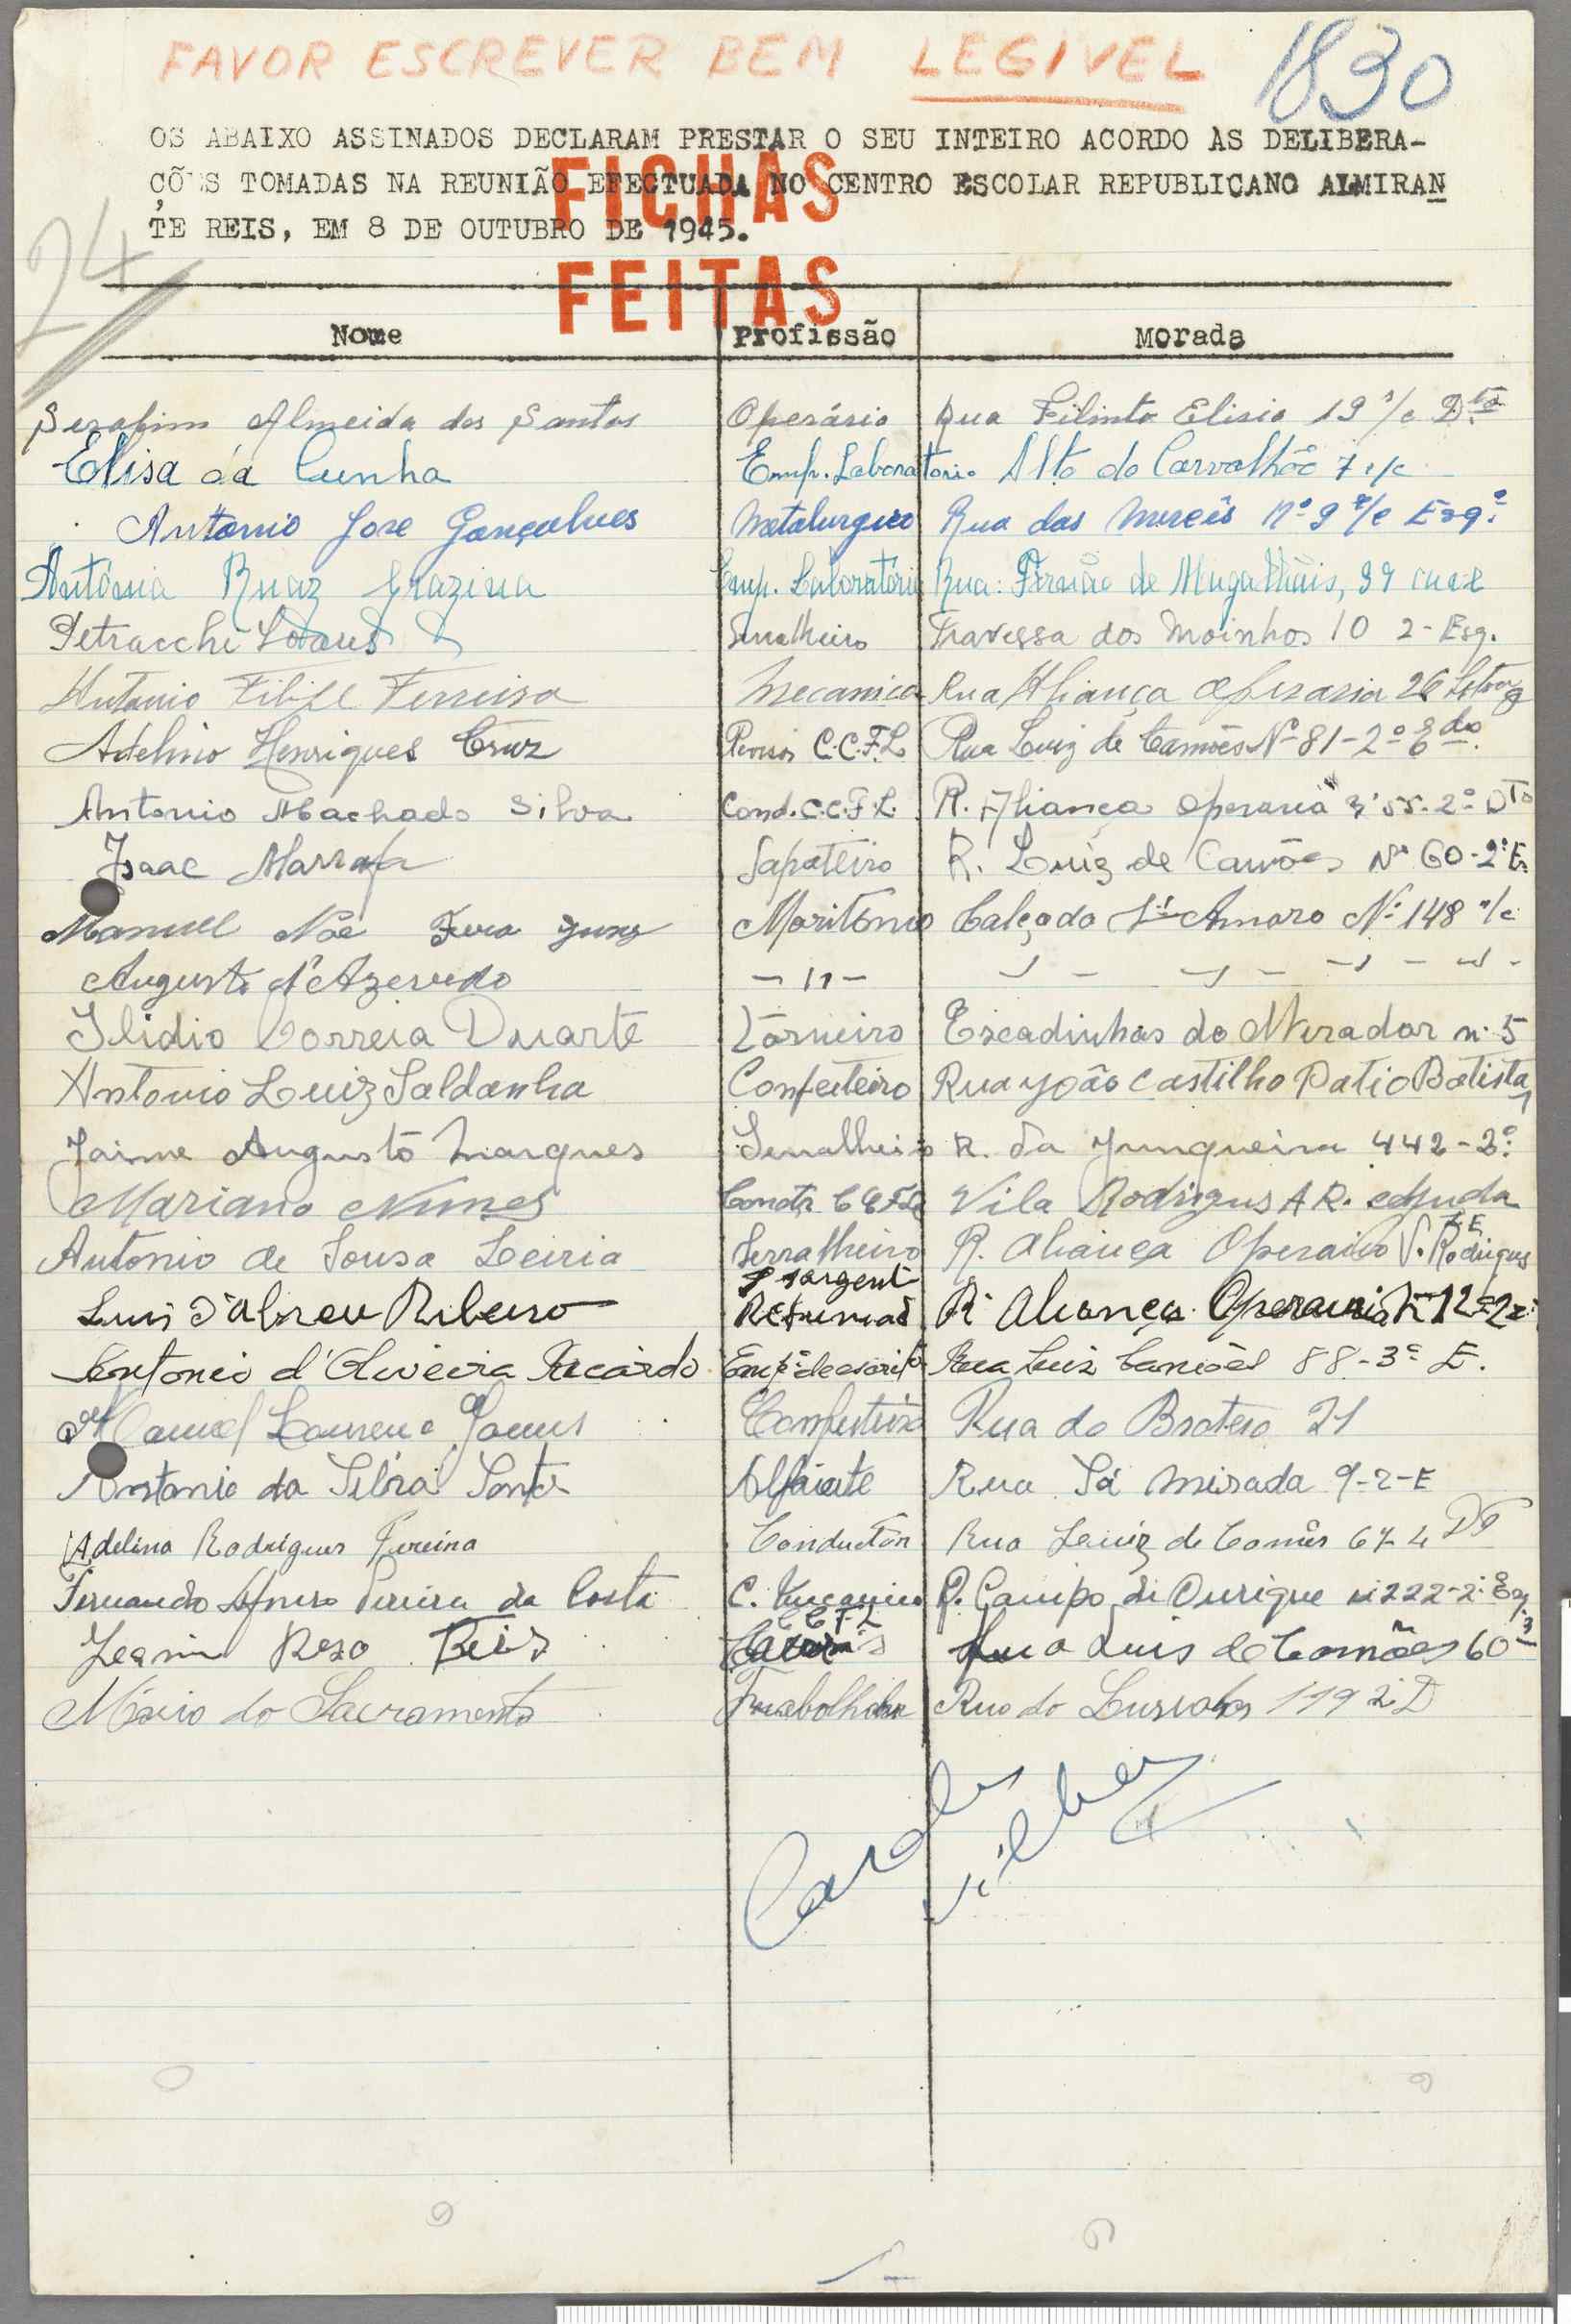 FAVOR ESCREVER BEM LEGIVEL 1830
OS ABAIXO ASSINADOS DECLARAM PRESTAR O SEU INTEIRO ACORDO AS DELIBERA-
ÇÕES TOMADAS NA REUNIÃO EFECTUADA NO CENTRO ESCOLAR REPUBLICANO ALMIRAN
TE REIS, EM 8 DE OUTUBRO DE 1945.
FICHAS
FEITAS
24
Nome Profissão Morada
Serafim Almeida dos Santos Operário Rua Filinto Elisio 19 r/c D.to
Elisa da Cunha Emp. Laboratorio Alto do Carvalhão 7 r/c
Antonio Jose Gonçalves Metalurgico Rua das Mercês Nº 9 r/c Esqº
Antónia Ruaz Grazina Emp. Laboratório Rua: Fernão de Magalhãis, 39
Petracchi Serralheiro Travessa dos Moinhos 10 2- Esq.
Antonio Filipe Ferreira Mecanico Rua Aliança Operaria 26
Adelino Henriques Cruz C.C.F.L Rua Luiz de Camões Nº 81-2º
Antonio Machado Silva Cond. C.C.F.L. R. Aliança Operaria 55-2º Dto
Isaac Marrafa Sapateiro R. Luiz de Camões Nº 60-2º E
Manuel Noé Maritimo Calçada Stº Amaro Nº 148 r/c
Augusto d'Azevedo - 11 -
Ilidio Correia Duarte Torneiro Escadinhas do Mirador nº 5
Antonio Luiz Saldanha Confeiteiro Rua João Castilho Patio Batista 1
Jaime Augusto Marques Serralheiro R. da Junqueira 442-2º
Mariano Nunes Vila Rodrigues A R. Ajuda
Antonio de Sousa Leiria Serralheiro R. Aliança Operaria V. Rodrigues
Luis d'Abreu Ribeiro Sargento Reformado R. Aliança Operaria
Antonio d'Oliveira Ricardo Empº de escritº Rua Luiz Camões 88-3º E.
Manuel Gomes Confeiteiro Rua do Brotero 21
Antonio da Silva Alfaiate Rua Sá Mirada 9-2-E
Adelino Rodrigues Ferreira Conductor Rua Luiz de Camões 67-4 Dto
Fernando Afonso Pereira da Costa C. Mecanico R. Campo di Ourique nº 222-2º Esq.
C C F L
Reis Rua Luis de Camões 60
Mário do Sacramento Trabalhador Rua do Lusiadas 119 2º D
Carlos